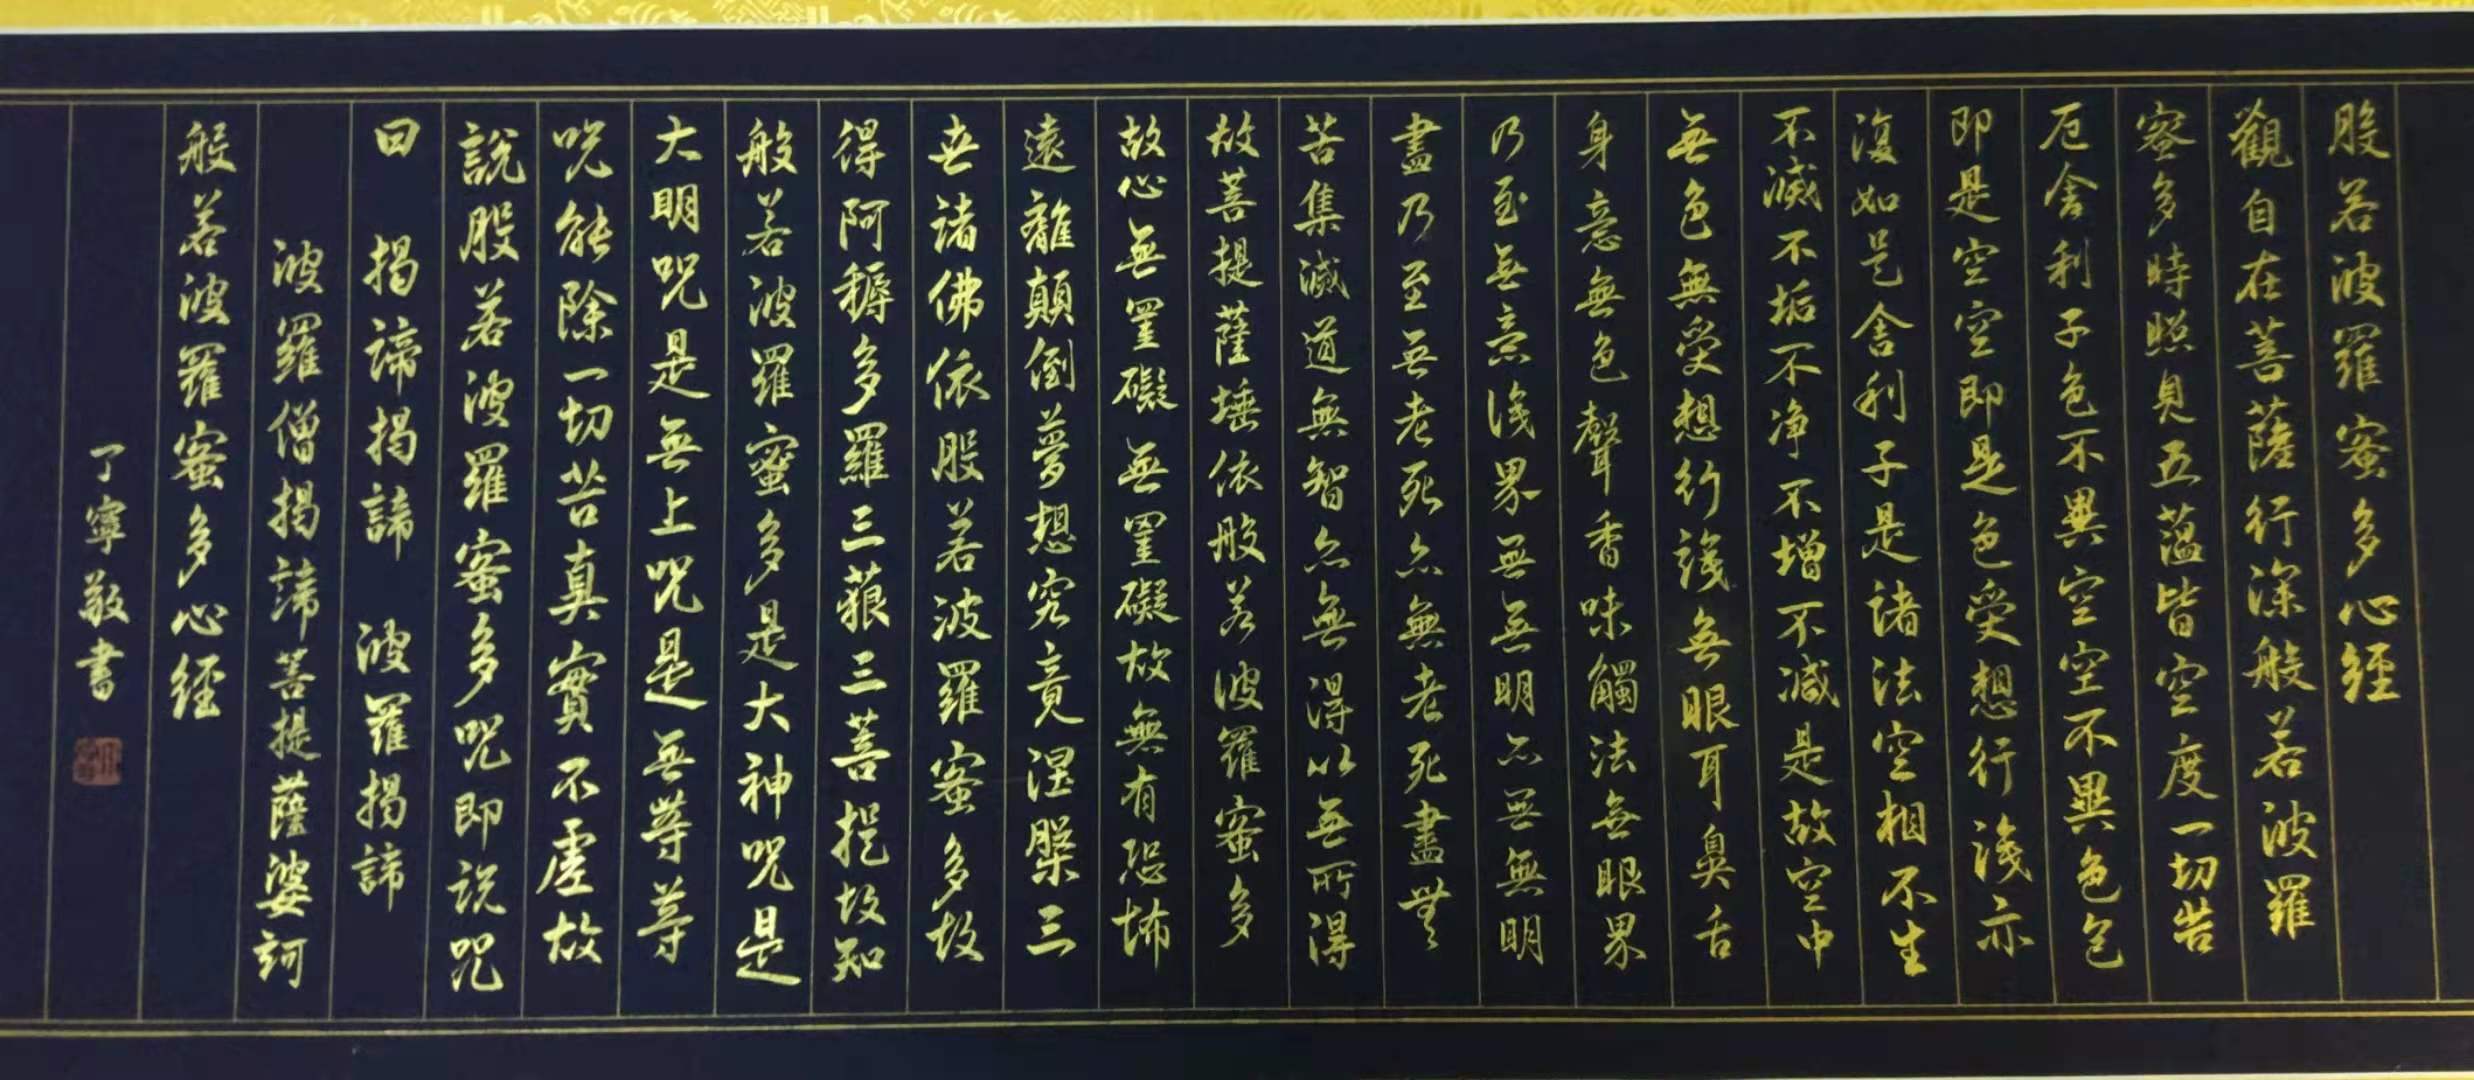 般若波羅蜜多心經
觀自在菩薩行深般若波羅
蜜多時照見五蘊皆空度一切苦
厄舍利子色不異空空不異色色
即是空空即是色受想行識亦
復如是舍利子是諸法空相不生
不滅不垢不淨不增不減是故空中
無色無受想行識無眼耳鼻舌
身意無色聲香味觸法無眼界
乃至無意識界無無明亦無無明
盡乃至無老死亦無老死盡無
苦集滅道無智亦無得以無所得
故菩提薩埵依般若波羅蜜多
故心無罣礙無罣礙故無有恐怖
遠離顛倒夢想究竟涅槃三
世諸佛依般若波羅蜜多故
得阿耨多羅三藐三菩提故知
般若波羅蜜多是大神咒是
大明咒是無上咒是無等等
咒能除一切苦真實不虛故
說般若波羅蜜多咒即說咒
曰 揭諦揭諦 波羅揭諦
波羅僧揭諦菩提薩婆訶
般若波羅蜜多心經
丁寧敬書